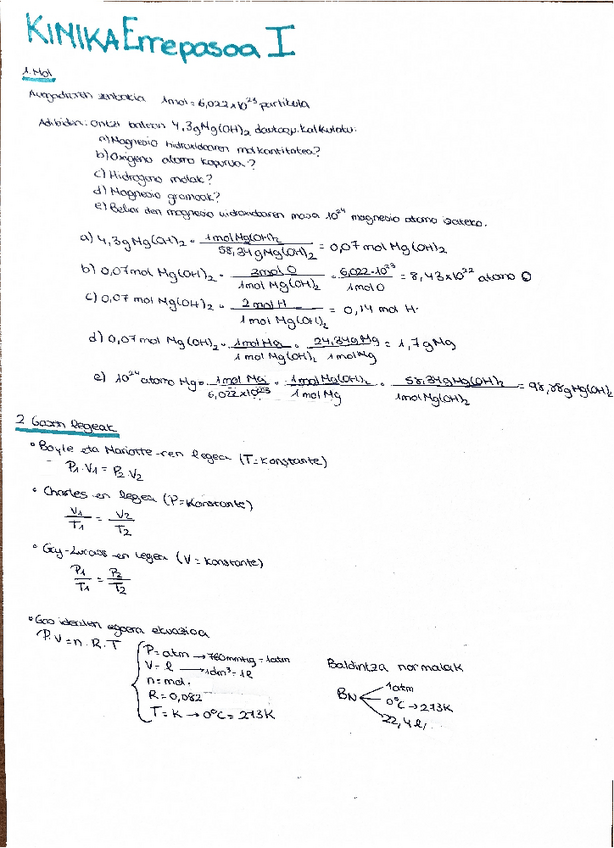 KIMIKA Errepasoa I
1. Mol
Avogadroren zenbakia 1mol = 6,022x10²³ partikula
Adibidea: Ontzi batean 4,3g Mg(OH)₂ daukagu. Kalkulatu:
a) Magnesio hidroxidoaren mol kantitatea?
b) Oxigeno atomo kopurua?
c) Hidrogeno molak?
d) Magnesio gramoak?
e) Behar den magnesio hidroxidoaren masa 10²⁴ magnesio atomo izateko.
a) 4,3g Mg(OH)₂ · 1mol Mg(OH)₂ / 58,34g Mg(OH)₂ = 0,07 mol Mg(OH)₂
b) 0,07mol Mg(OH)₂ · 2mol O / 1mol Mg(OH)₂ · 6,022·10²³ / 1mol O = 8,43x10²² atomo O
c) 0,07 mol Mg(OH)₂ · 2 mol H / 1 mol Mg(OH)₂ = 0,14 mol H.
d) 0,07 mol Mg(OH)₂ · 1mol Mg / 1mol Mg(OH)₂ · 24,34g Mg / 1molMg = 1,7gMg
e) 10²⁴ atomo Mg · 1mol Mg / 6,022x10²³ · 1mol Mg(OH)₂ / 1mol Mg · 58,34g Mg(OH)₂ / 1mol Mg(OH)₂ = 98,88g Mg(OH)₂
2 Gasen legeak
• Boyle eta Mariotte-ren legea (T=Konstante)
- P₁·V₁ = P₂·V₂
• Charles-en legea (P=Konstante)
V₁/T₁ = V₂/T₂
• Gay-Lussac-en legea (V=Konstante)
P₁/T₁ = P₂/T₂
• Gas idealen egoera ekuazioa
P.V=n.R.T
P=atm → 760mmHg = 1atm
V=l → 1dm³=1l
n=mol.
R=0,082
T=K → 0ºC = 273K
Baldintza normalak
BN
1atm
0ºC → 273K
22,4l